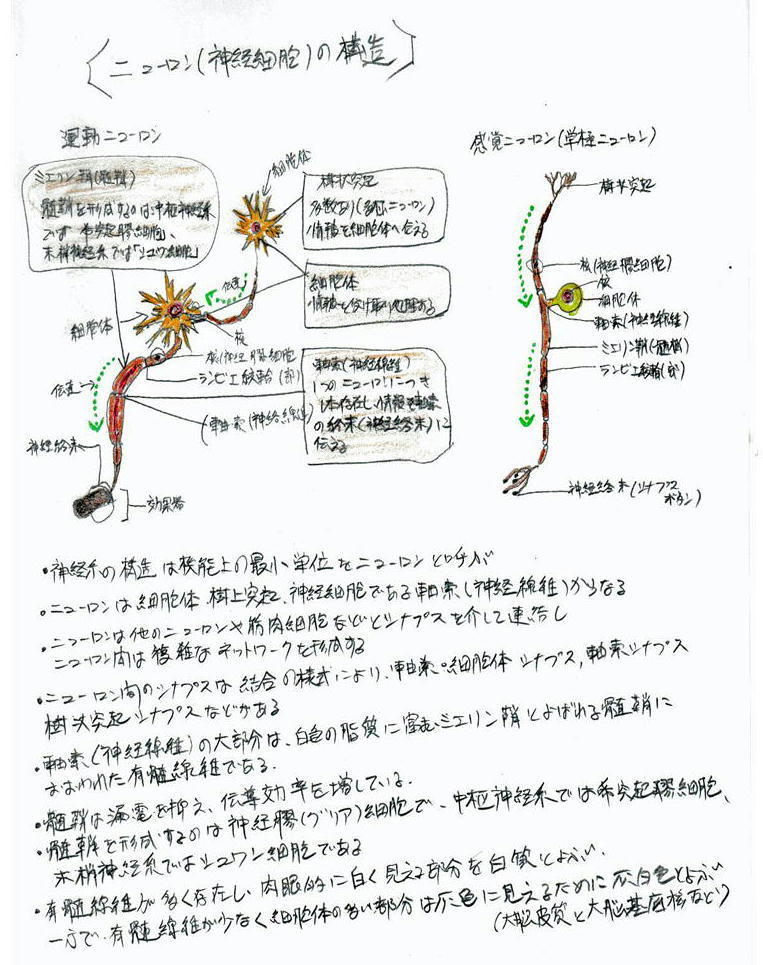 ニューロン(神経細胞)の構造
運動ニューロン
ミエリン鞘(髄鞘)
髄鞘を形成するのは中枢神経系
では 希突起膠細胞、
末梢神経系では「シュワン細胞」
細胞体
樹状突起
多数あり(多極ニューロン)
情報を細胞体へ伝える
細胞体
情報を受け取り処理する
伝導
細胞体
核
核(神経膠細胞
ランビエ絞輪(部)
軸索(神経線維)
1つのニューロンにつき
1本存在し、情報を軸索
の終末(神経終末)に
伝える
伝導
(軸索(神経線維)
神経終末
効果器
感覚ニューロン(単極ニューロン)
樹状突起
核(神経膠細胞)
核
細胞体
軸索(神経線維)
ミエリン鞘(髄鞘)
ランビエ絞輪(部)
神経終末(シナプス
ボタン)
・神経系の構造は機能上の最小単位をニューロンと呼ぶ
・ニューロンは細胞体 樹上突起、神経細胞である軸索(神経線維)からなる
・ニューロンは他のニューロンや筋肉細胞などとシナプスを介して連結し
ニューロン間は複雑なネットワークを形成する
・ニューロン間のシナプスは結合の様式により、軸索・細胞体シナプス,軸索シナプス
樹状突起シナプスなどがある
・軸索(神経線維)の大部分は、白色の脂質に富むミエリン鞘とよばれる髄鞘に
おおわれた有髄線維である.
・髄鞘は漏電を抑え、伝導効率を増している.
・髄鞘を形成するのは神経膠(グリア)細胞で、中枢神経系では希突起膠細胞、
末梢神経系ではシュワン細胞である
・有髄線維が多く存在し、肉眼的に白く見える部分を白質とよぶ.
一方で、有髄線維が少なく細胞体の多い部分は灰色に見えるために灰白色とよぶ
(大脳皮質と大脳基底核など)